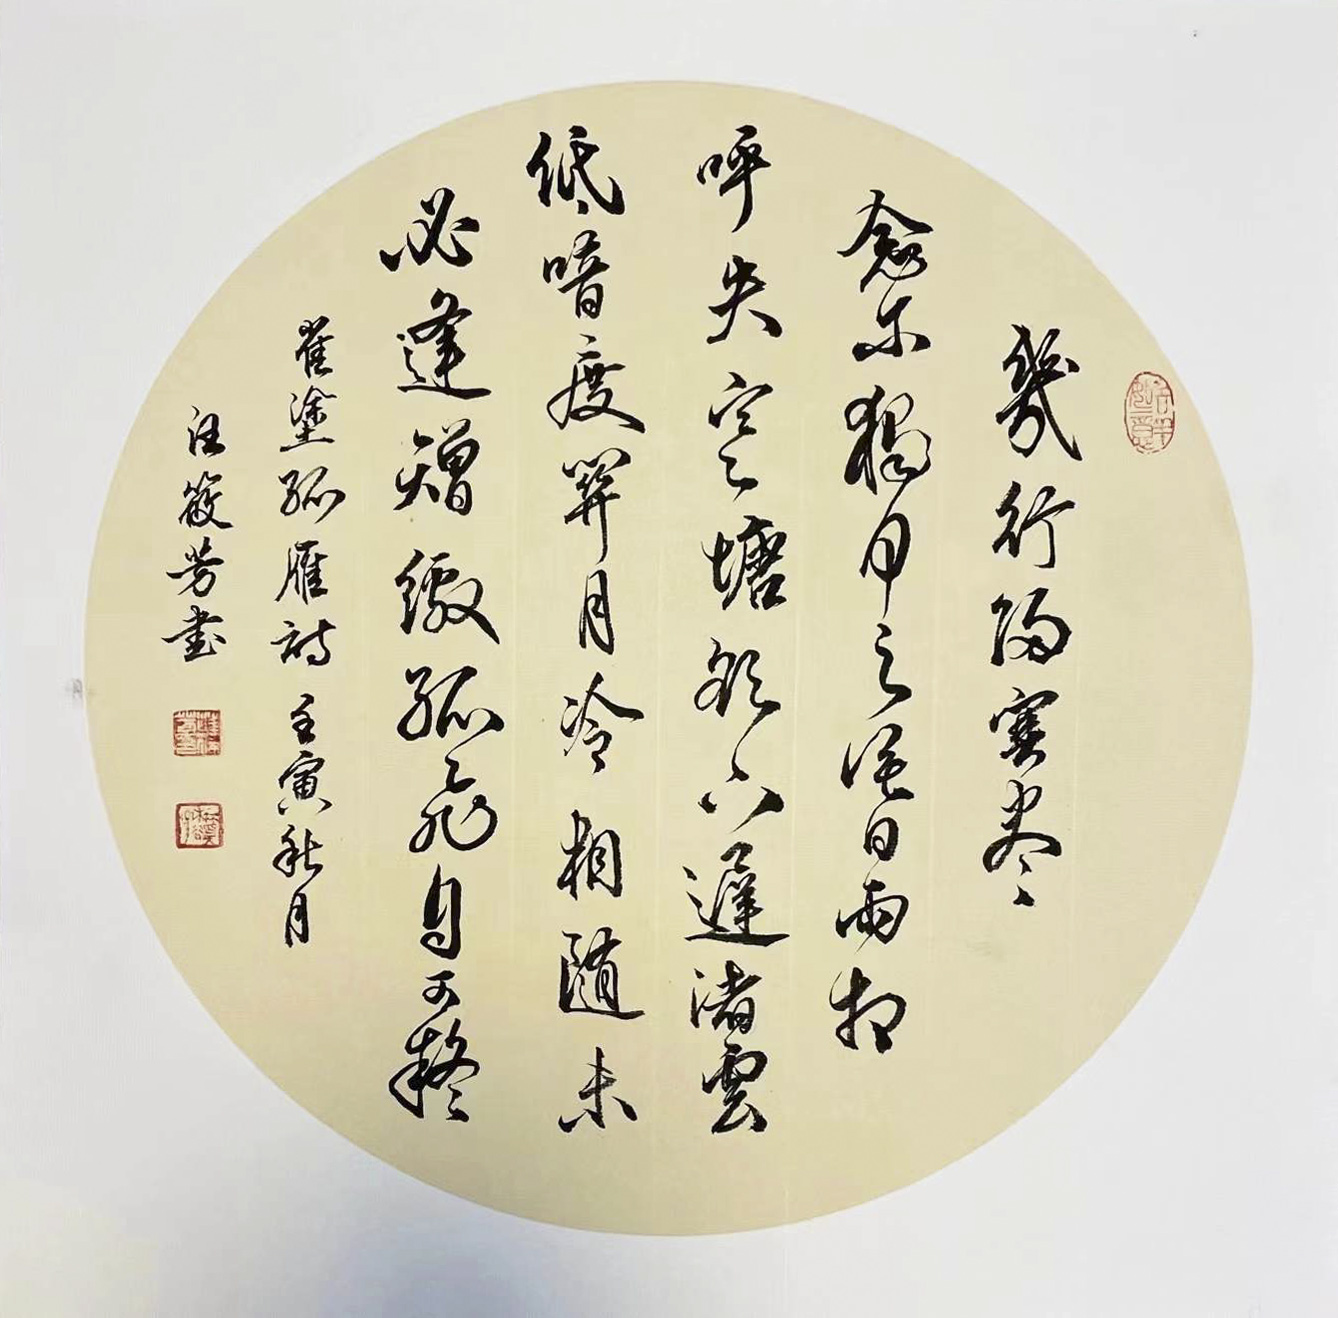 幾行歸塞盡
念尔獨何之暮雨相
呼失寒塘欲下遲渚雲
低暗度關月冷相隨未
必逢矰繳孤飛自可疑
崔塗孤雁詩 壬寅秋月
汪筱芳書